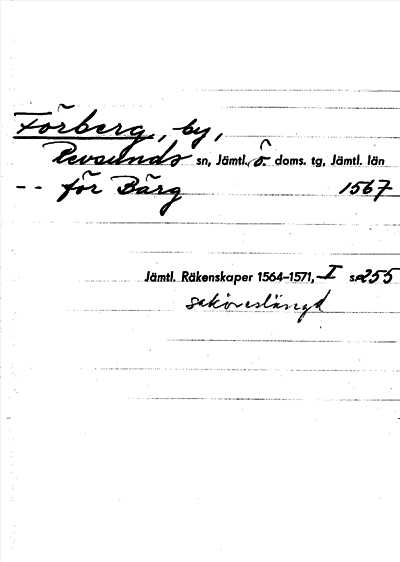 Förberg, by,
Revsunds sn, Jämtl. ö. doms. tg, Jämtl. län
-- för Bärg 1567
Jämtl. Räkenskaper 1564–1571, I s. 255
saköreslängd